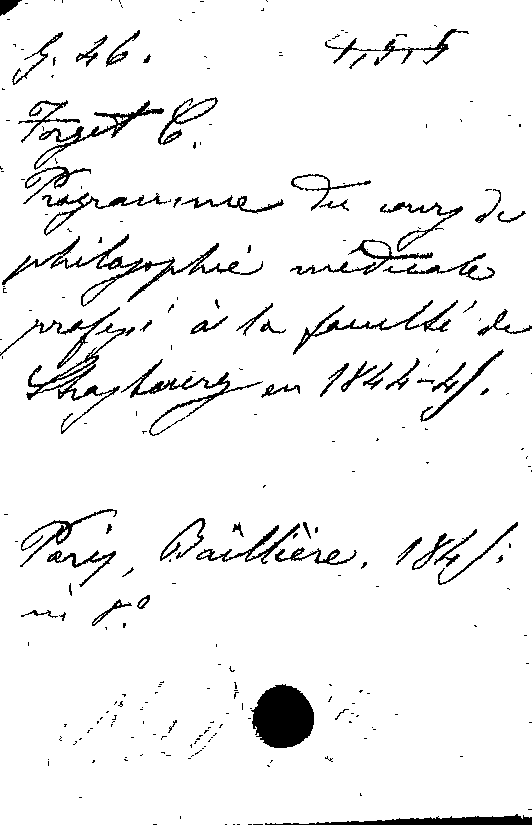 G. 26. 4,5,5
Forget C.
Programme du cours de
philosophie médicale
professé à la faculté de
Strasbourg en 1844-45.
Paris, Baillière. 1845.
in 8.º